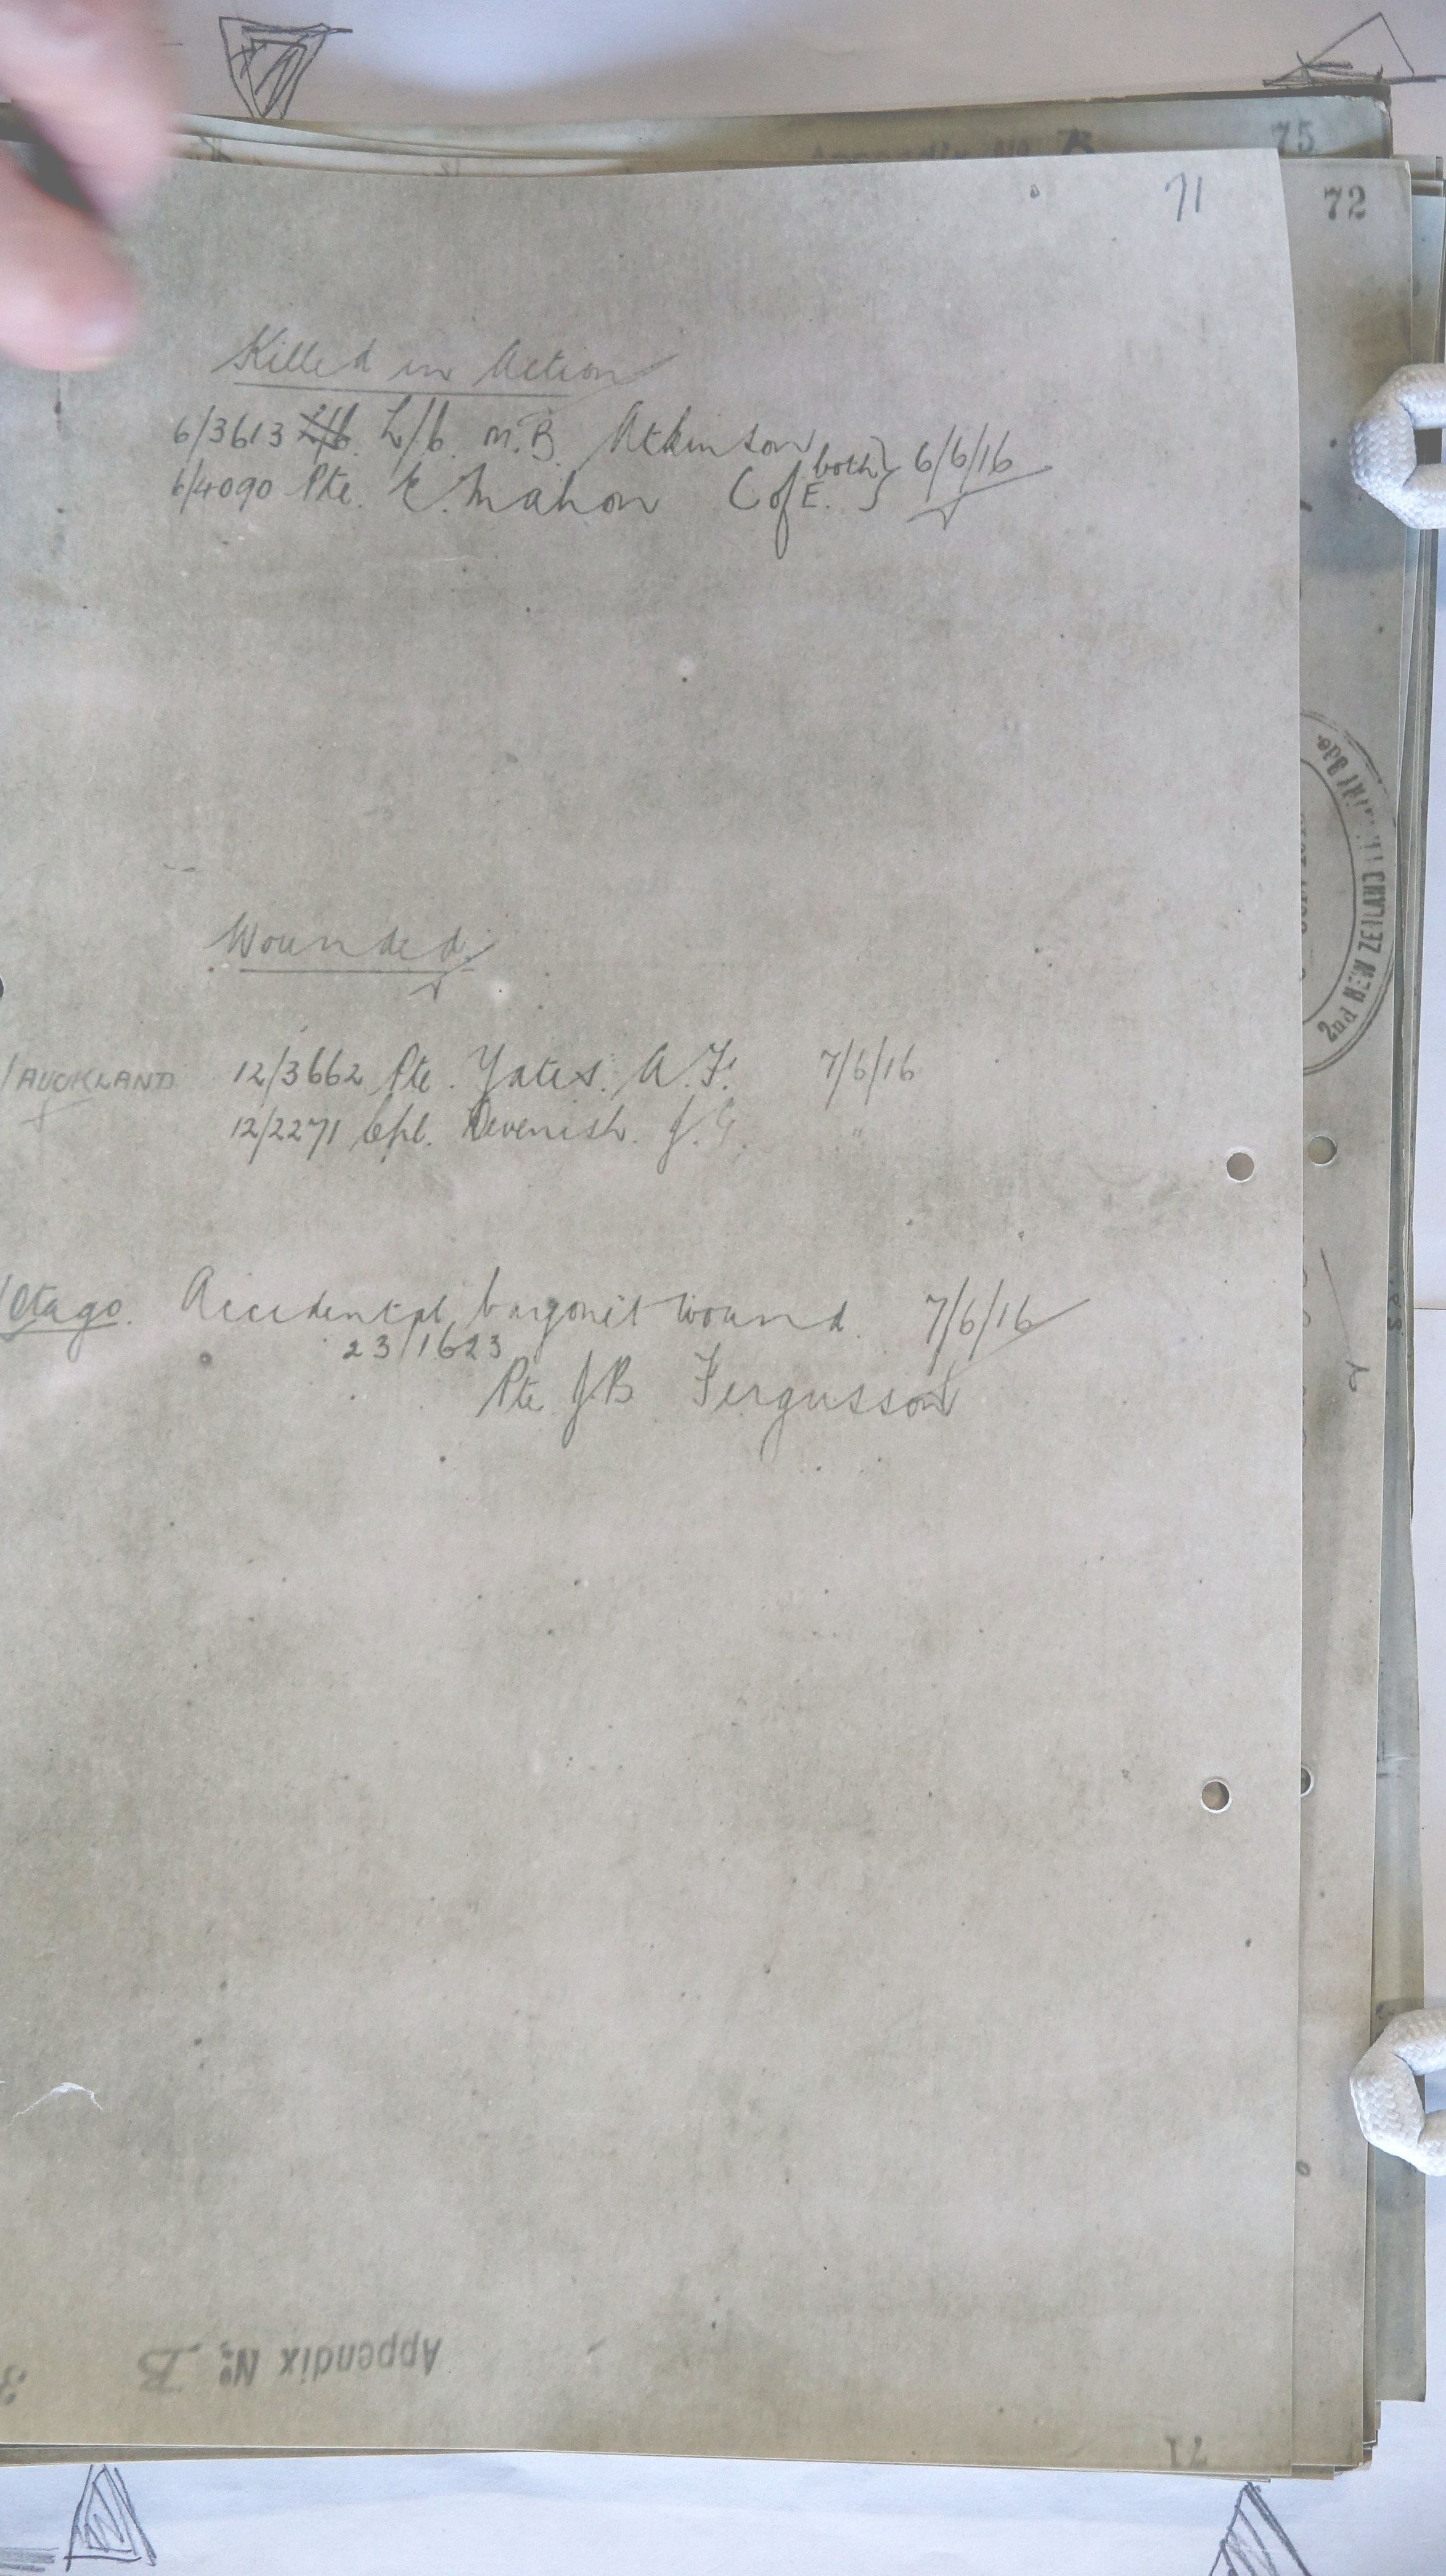 75
Appendix No B
71
72
Killed in Action
6/3613 L/C. L/C. M.B. Atkinson
both} 6/6/16
6/4090 Pte. E. Mahon (C of E.
Wounded.
2nd NEW ZEALAND Bde.
/AUCKLAND 12/3662 Pte. Yates. A.F. 7/6/16
12/2271 Cpl. Devenish. J.G. "
/Otago. Accidental bayonet wound. 7/6/16
23/1623
Pte J.B Fergusson
Appendix No. B
71